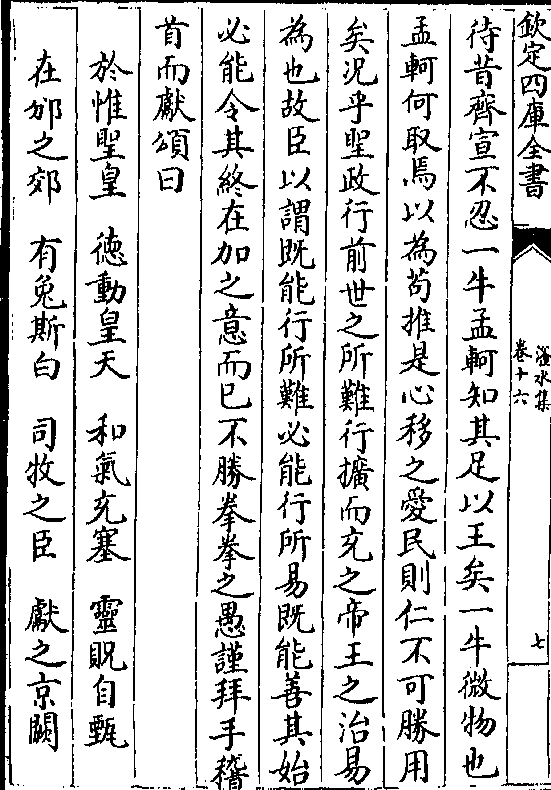 欽定四庫全書
滏水集
卷十六
七
待昔齊宣不忍一牛孟軻知其足以王矣一牛微物也
孟軻何取焉以為苟推是心移之愛民則仁不可勝用
矣况乎聖政行前世之所難行擴而充之帝王之治易
為也故臣以謂既能行所難必能行所易既能善其始
必能令其終在加之意而已不勝拳拳之愚謹拜手稽
首而獻頌曰
於惟聖皇　德動皇天　和氣充塞　靈貺自甄
在邠之郊　有兔斯白　司牧之臣　獻之京闕